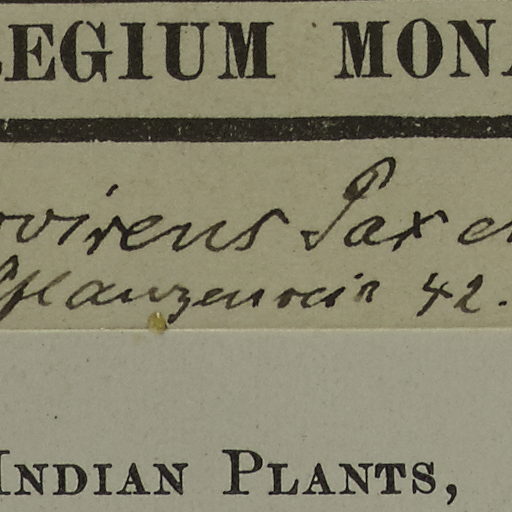 EGIUM MONA
ovirens Pax e
Pflanzenreich 42.
INDIAN PLANTS,